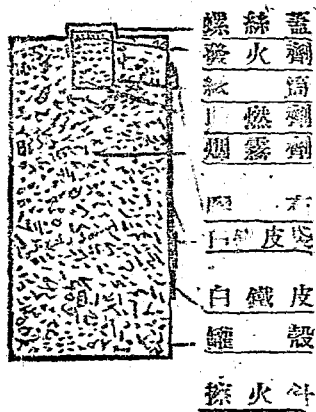 螺絲蓋
發火劑
紙筒
燃劑
烟霧劑
白鐵皮
白鐵皮
罐殼
擦火